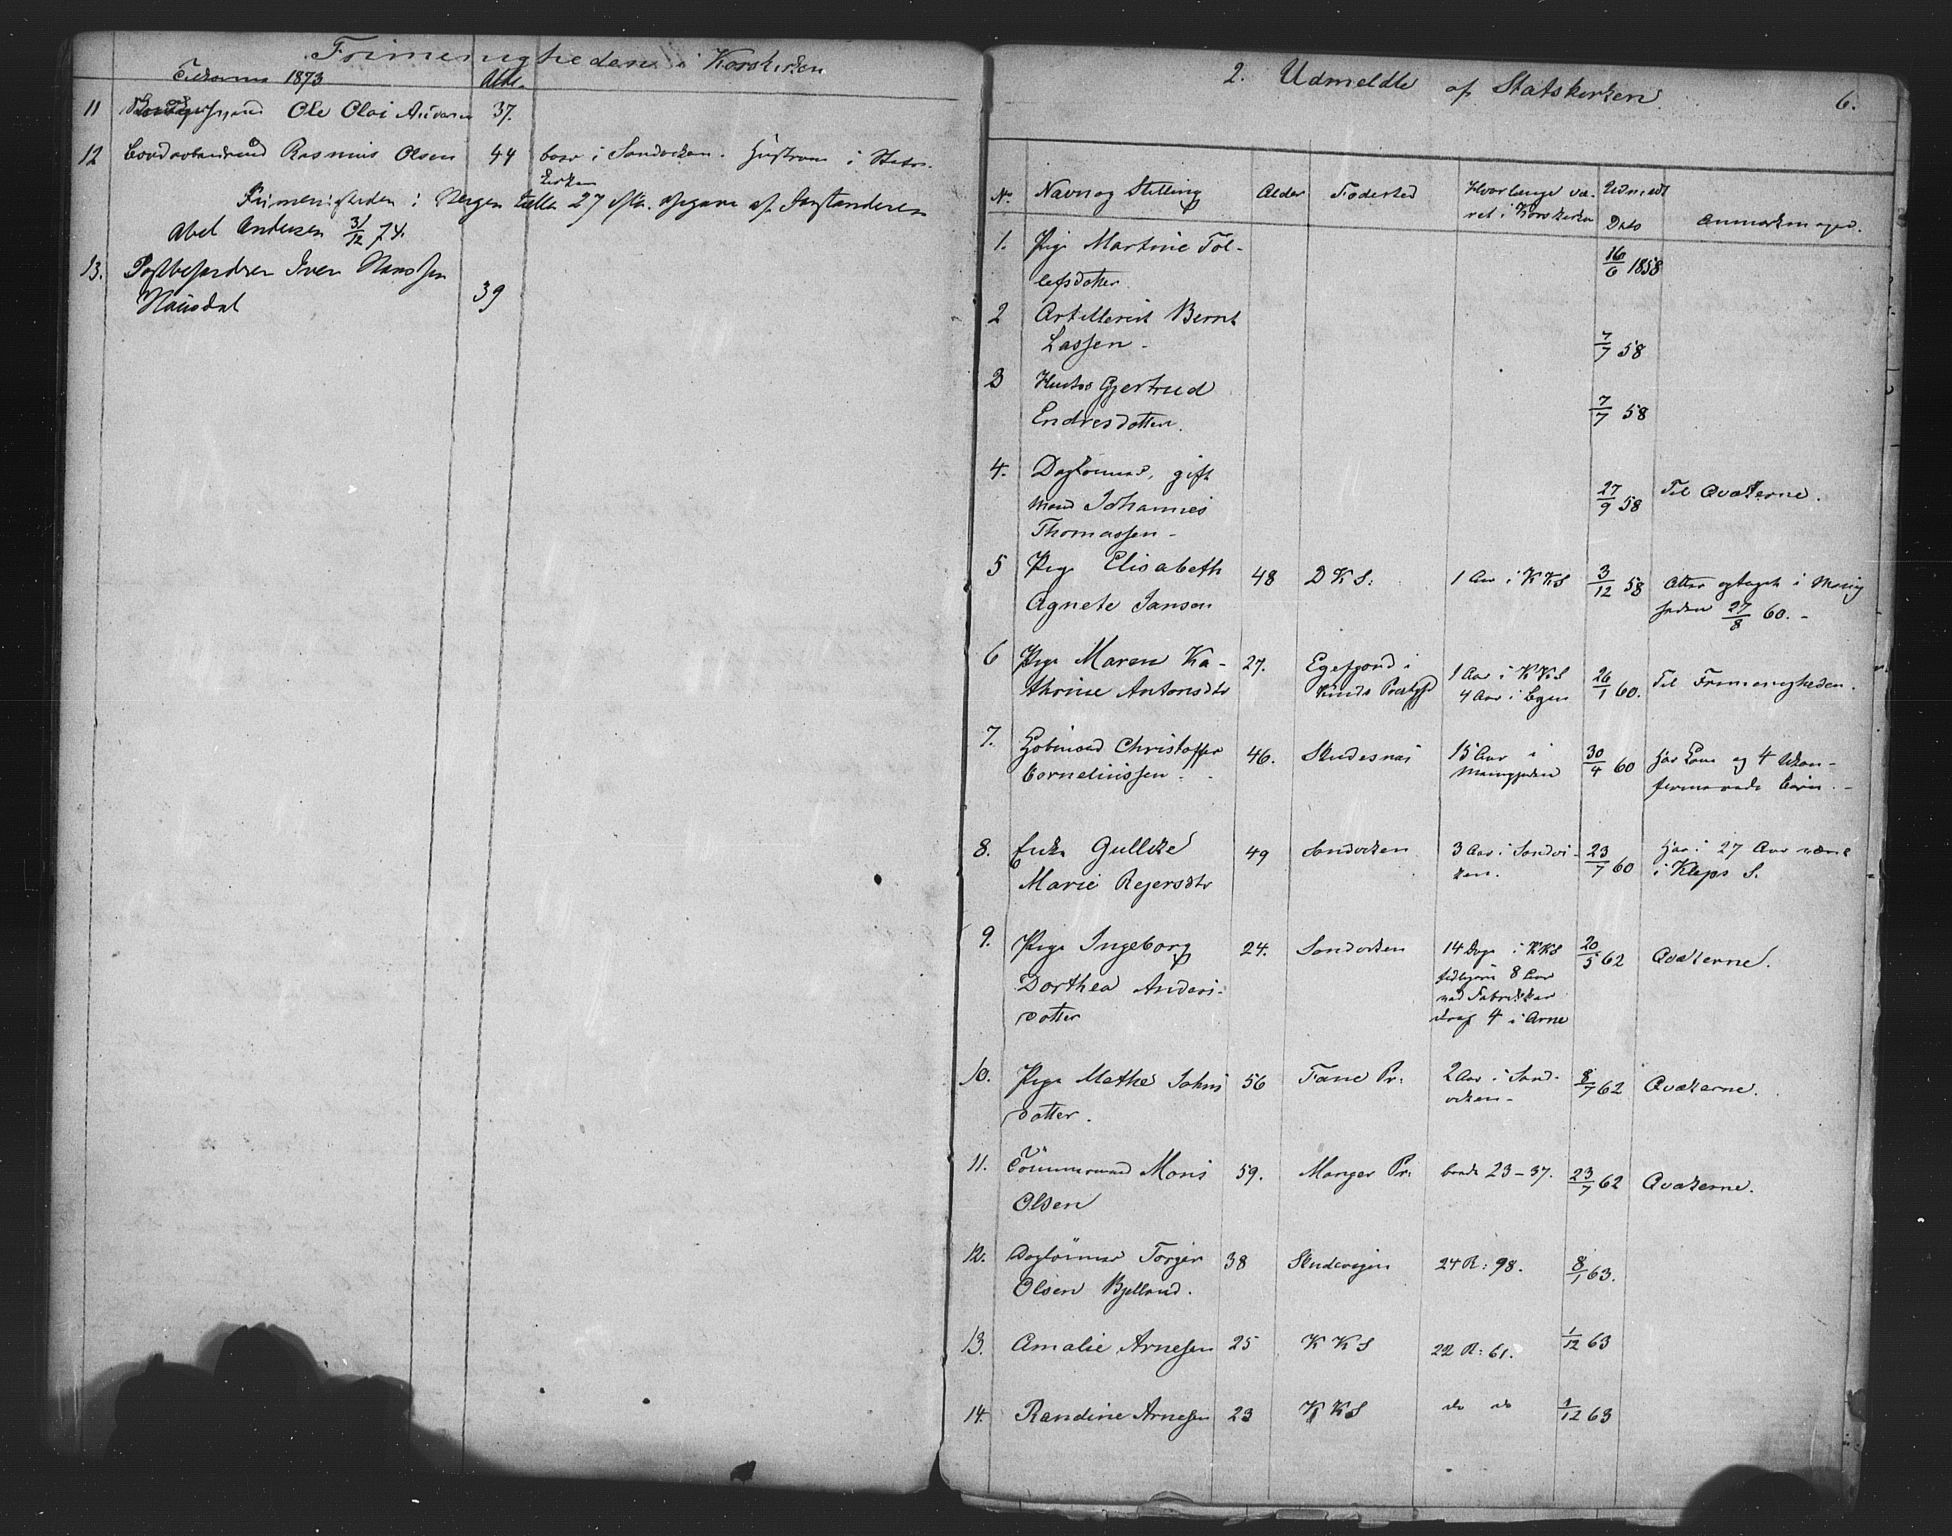 Frimenigheden i Korskirken
1873 Alder
11 Ole Olai 37.
12 Rasmus Olsen 44 boer i Sandviken. Hustruen i Stats-
kirken
Frimenigheden i Bergen 27 af Forstanderen
Abel Andersen 31/12 74.
13. Postbefordrer Iver Hanssen
Hausdal 39
2. Udmeldte af Statskirken 6.
No. Navn og Stilling Alder Fødested Hvorlænge væ-
ret i Korskirken Udmeldt
Dato Anmærkninger.
1. Pige Martine Tol-
lefsdotter. 16/6 1858
2 Artillerist Bernt
Lassen - 7/7 58
3 Hustru Gjertrud
Endresdotter. 7/7 58
4. Daglønner, gift
Mand Johannes
Thomassen - 27/9 58 Til Qvækerne.
5 Pige Elisabeth
Agnete Janson 48 D K S: 1 Aar i K K S 3/12 58 Atter optaget i Menig
heden 27/8 60. -
6 Pige Maren Ka-
thrine Antonsdtr 27. Egefjord i
Kinds Præstgjd 1 Aar i K K S
4 Aar i Byen 26/1 60. Til Frimenigheden.
7. Christoffer
Cornelinssen. 46. Skudesnæs 15 Aar i
Menigheden 30/4 60 har Kone og 4 Ukon-
firmerede Børn. -
8. Enke Gullike
Marie Rejersdtr 49 Sandviken 3 Aar i Sandvi-
ken. 23/7 60 Har i 27 Aar været
i Kleps S.
9. Pige Ingeborg
Dorthea Anders-
dotter 24. Sandviken 14 Dage i K K S
tidligere 8 Aar
ved Fabrikker
deraf 4 i Arne 20/5 62 Qvækerne.
10. Pige Methe Johns
dotter. 56 Fane Pr: 2 Aar i Sand-
viken - 8/7 62 Qvækerne.
11. Tömmermand Mons
Olsen 59. Manger Pr: 23-37. 23/7 62 Qvækerne.
12. Daglönner Torger
Olsen Bjelland. 38 Skudevigen 24 R: 98. 8/1 63.
13. Amalie Arnesen 25 K K S 22 R: 61. 1/12 63
14. Randine Arnesen 23 K K S do do 1/12 63